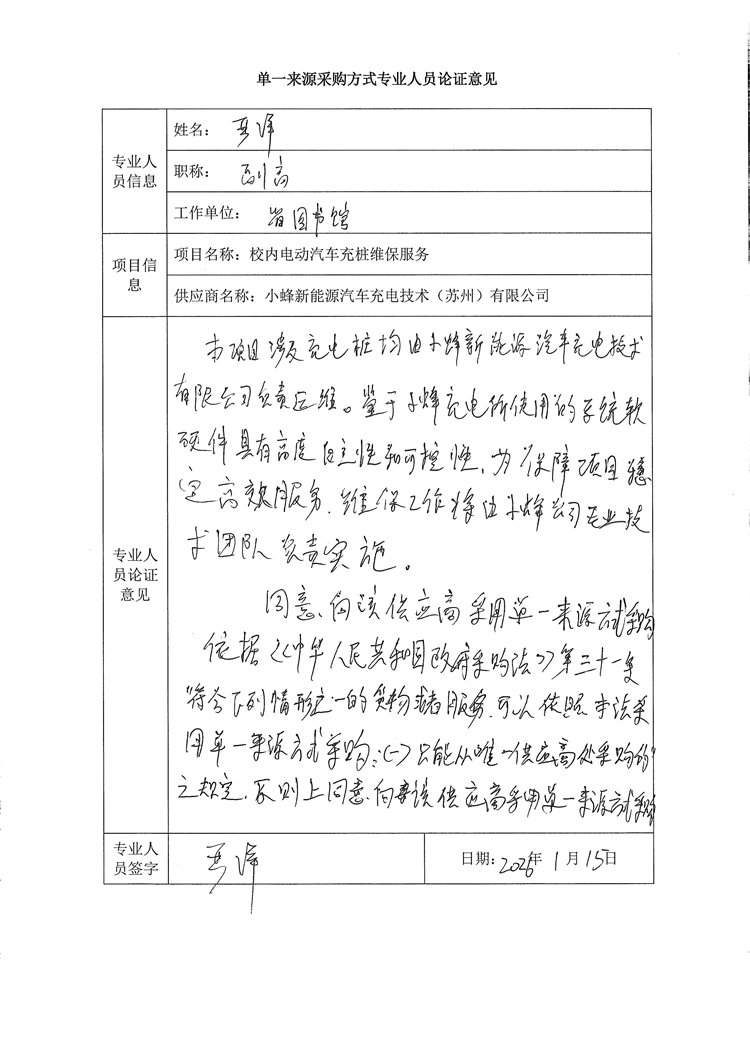 单一来源采购方式专业人员论证意见
专业人
员信息
姓名：
职称：副高
工作单位：省图书馆
项目信
息
项目名称：校内电动汽车充桩维保服务
供应商名称：小蜂新能源汽车充电技术（苏州）有限公司
专业人
员论证
意见
本项目涉及充电桩均由小蜂新能源汽车充电技术
有限公司负责运维。鉴于小蜂充电所使用的系统软
硬件具有高度自主性和可控性，为保障项目稳
定高效服务，维保工作将由小蜂公司专业技
术团队负责实施。
同意向该供应商采用单一来源方式采购
依据《中华人民共和国政府采购法》第三十一条
"符合下列情形之一的货物或者服务，可以依照本法采
用单一来源方式采购：（一）只能从唯一供应商处采购的"
之规定，原则上同意向该供应商采用单一来源方式采购
专业人
员签字
日期：2026年1月15日